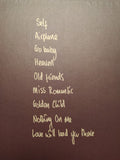 Self
Airplane
Go baby
Heaven
Old friends
Miss Romantic
Golden Child
Nothing On Me
Love will lead you there